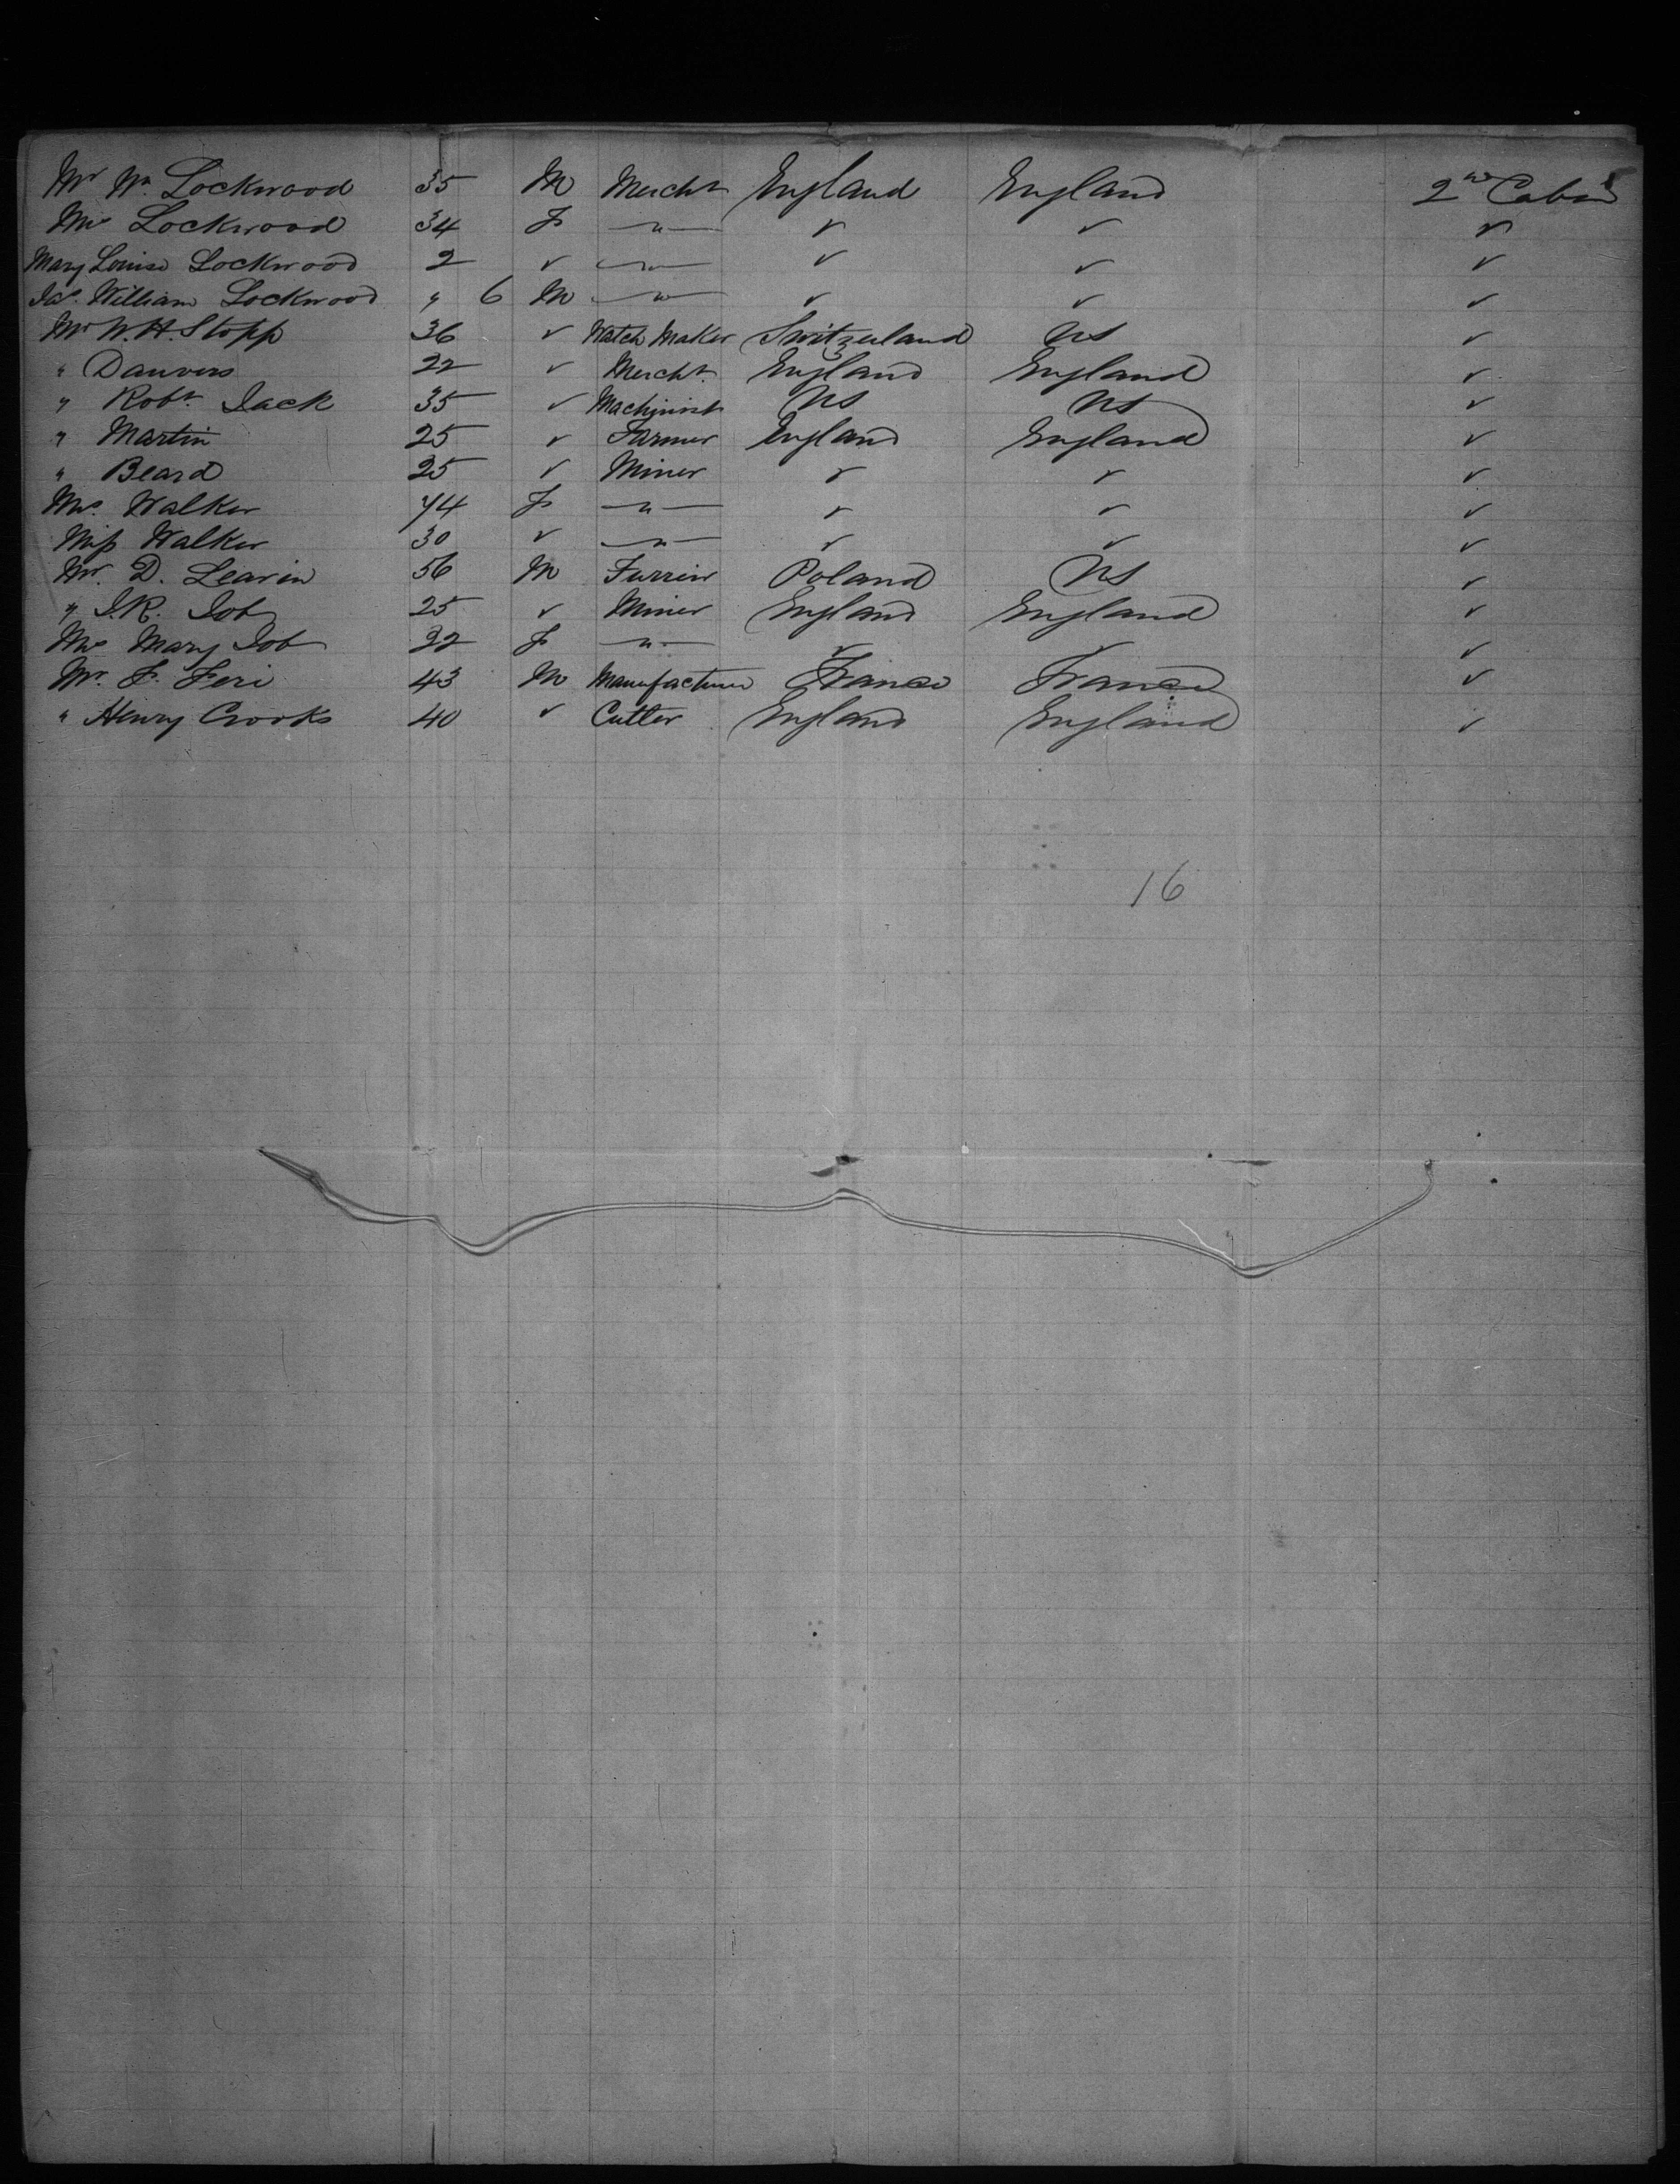 Mr Wm Lockwood 35 M Mercht England England 2nd Cabin
Mrs Lockwood 34 F " ✓ ✓ ✓
Mary Louise Lockwood 2 ✓ " ✓ ✓ ✓
Jas. William Lockwood " 6 M " ✓ ✓ ✓
Mr W. H. Stopp 36 ✓ Watch Maker Switzerland US ✓
" Danvers 22 ✓ Mercht. England England ✓
" Robt. Jack 35 ✓ Machinist US US ✓
" Martin 25 ✓ Farmer England England ✓
" Beard 25 ✓ Miner ✓ ✓ ✓
Mrs. Walker 74 F " ✓ ✓ ✓
Miss Walker 30 ✓ " ✓ ✓ ✓
Mr. D. 56 M Furrier Poland US ✓
" J. R. Job 25 ✓ Miner England England ✓
Mrs Mary Job 32 F " ✓ ✓ ✓
Mr. F. Feri 43 M Manufacturer France France ✓
" Henry Crooks 40 ✓ Cutler England England ✓
16